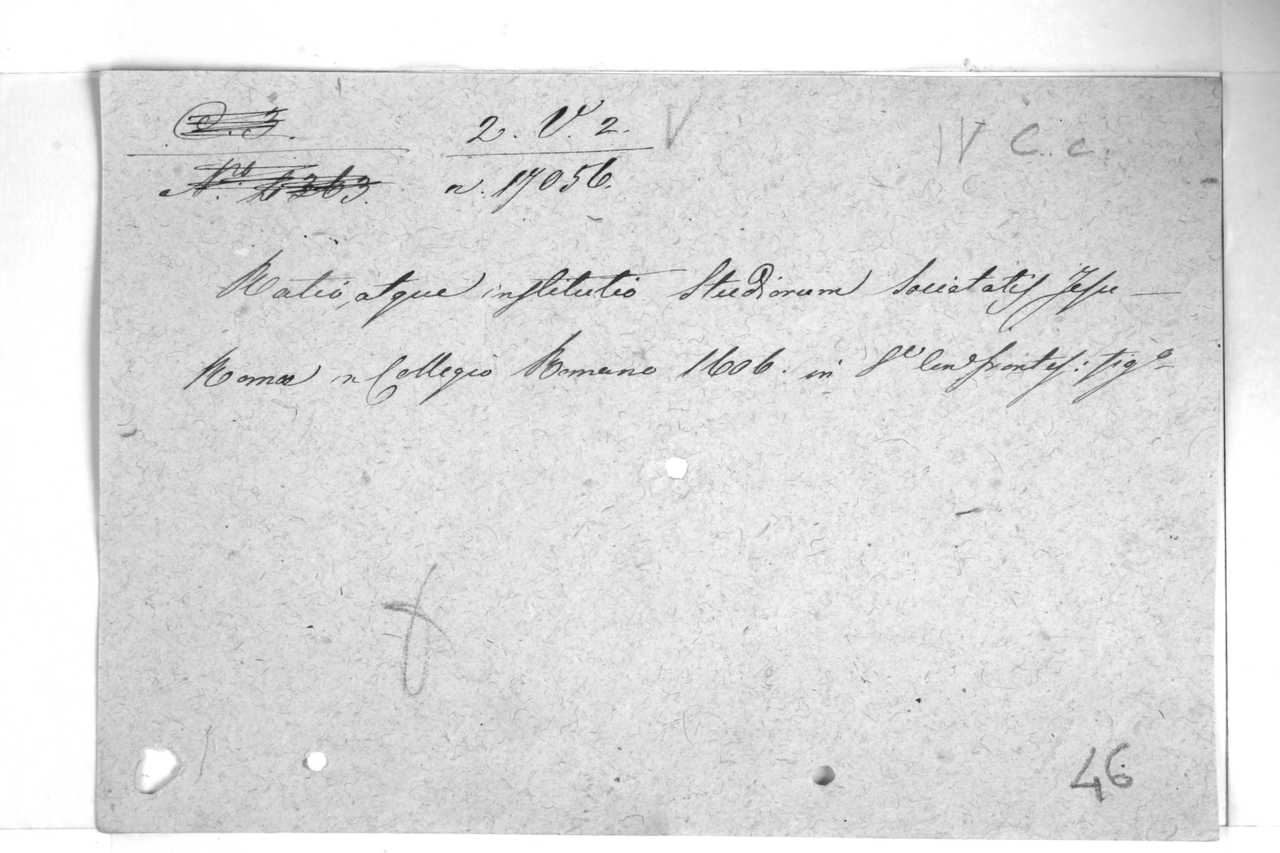 2. V. 2. V IV C. c.
n. 17056.
Ratio, atque institutio Studiorum Societatis Jesu —
Romæ in Collegio Romano 1606. in 8º con frontes: fig.º
46